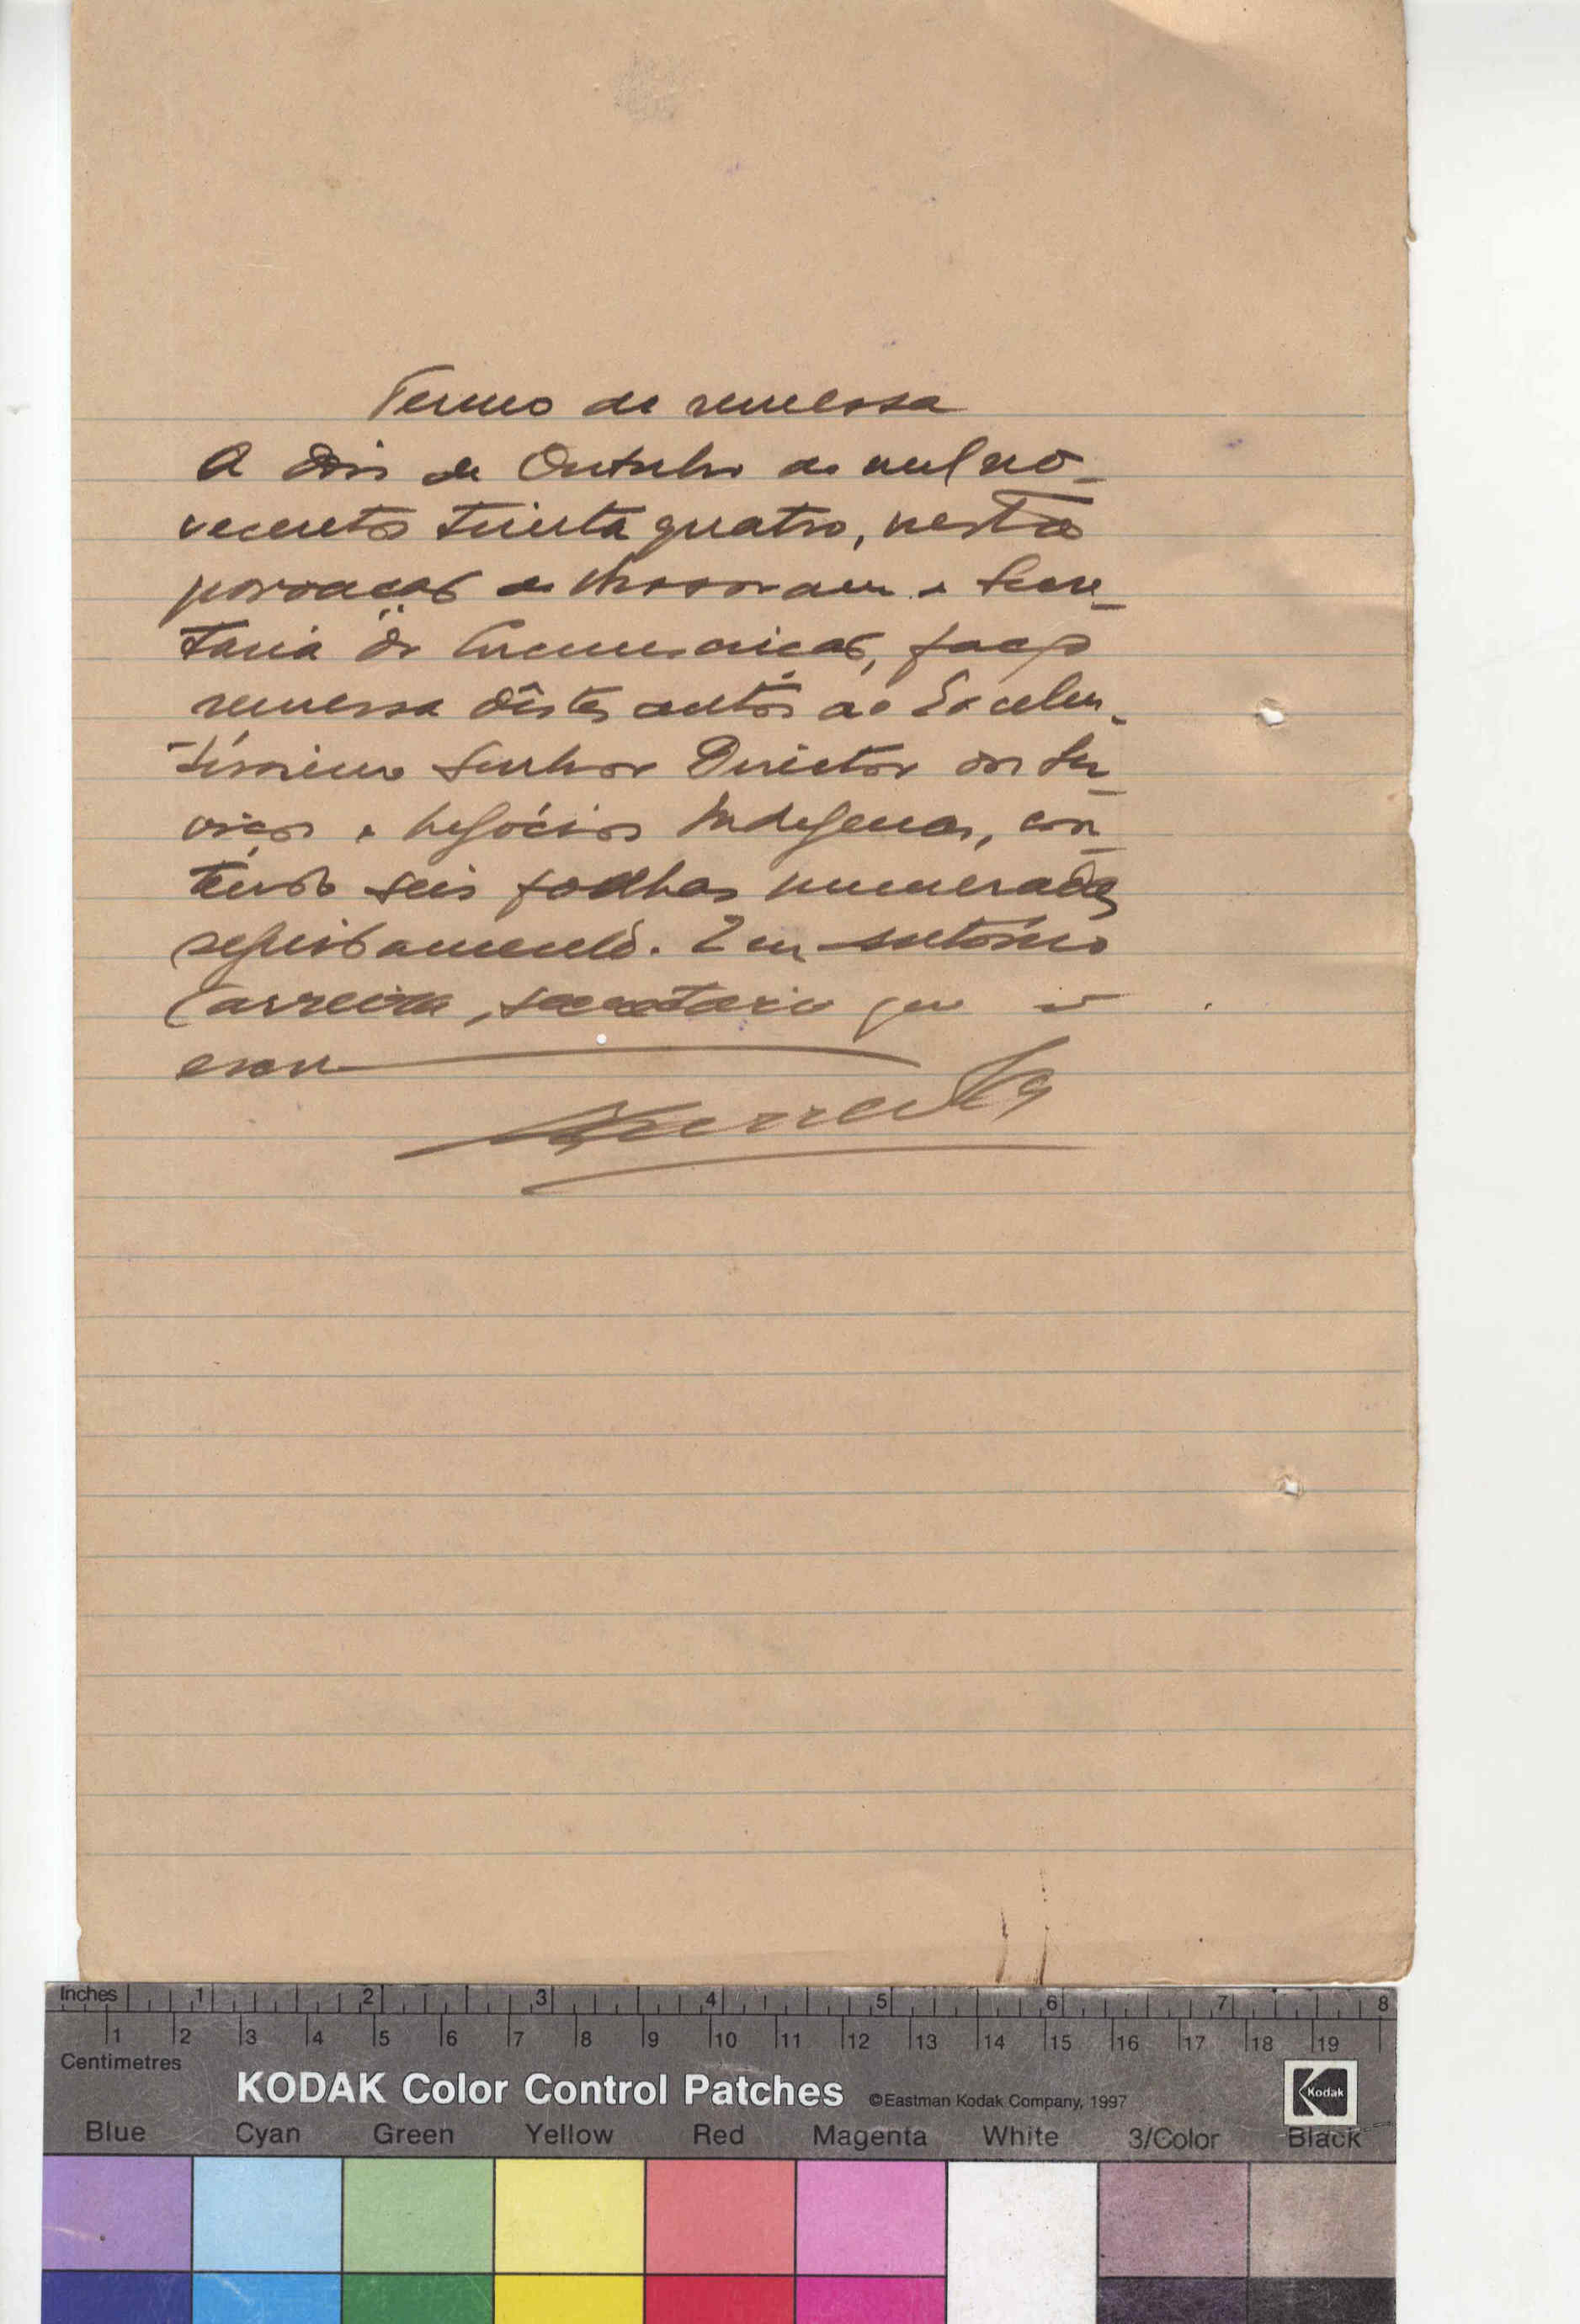 Termo de remessa
A dois de Outubro de mil no-
vecentos trinta quatro, nesta
povoação de Mossoram e Secre-
taria da Circunscrição, faço
remessa dêstes autos ao Excelen-
tíssimo Senhor Director dos Ser-
viços e Negócios Indígenas, con-
tendo seis folhas numeradas
seguidamente. Eu António
Carreira, secretario que o
escrevi
ACarreira
Inches 1 2 3 4 5 6 7 8
1 2 3 4 5 6 7 8 9 10 11 12 13 14 15 16 17 18 19
Centimetres
KODAK Color Control Patches ©Eastman Kodak Company, 1997 Kodak
Blue Cyan Green Yellow Red Magenta White 3/Color Black